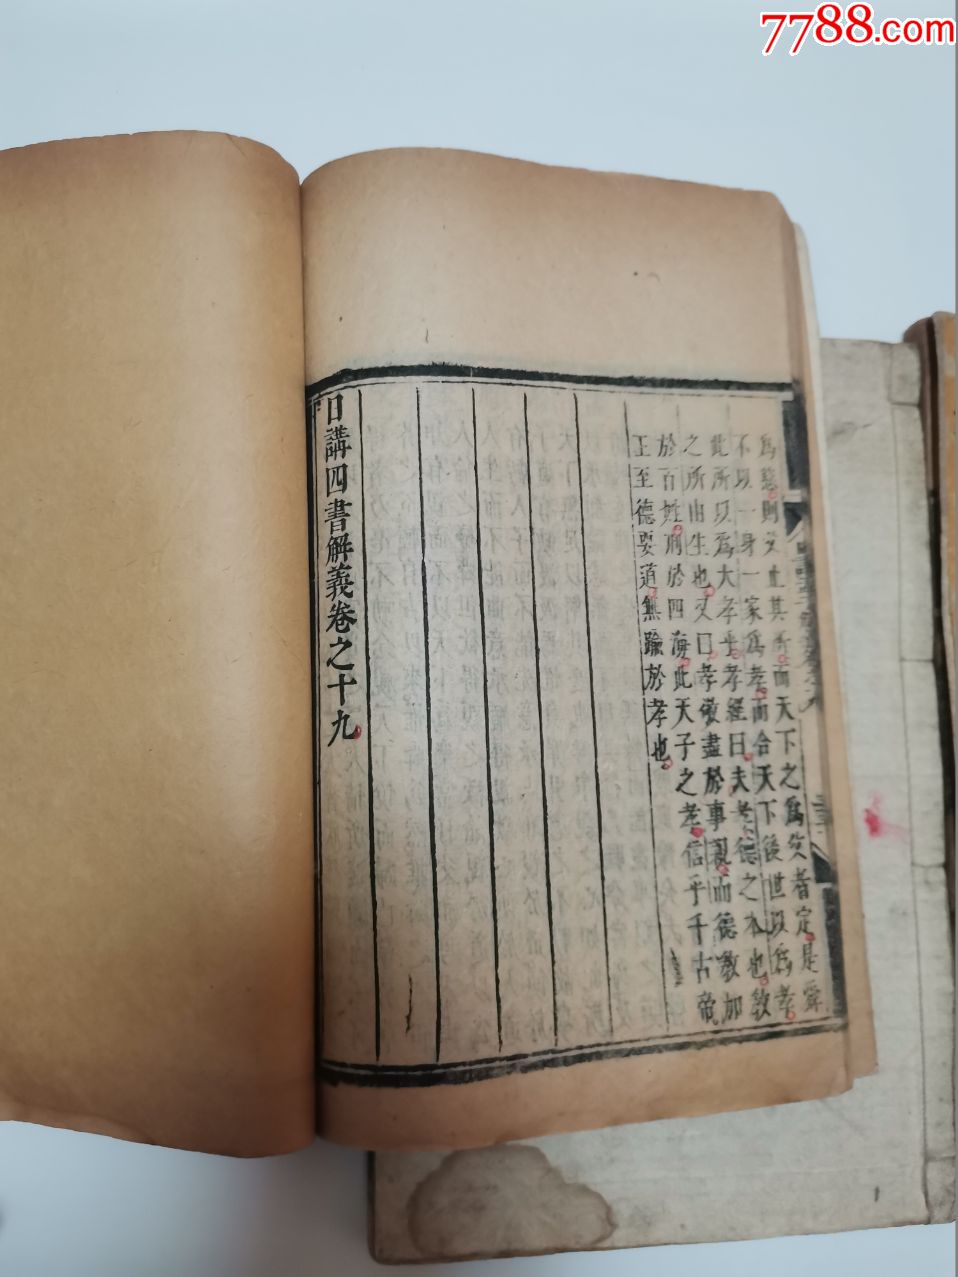 7788.com
為慈則父止其所而天下之為父者定是舜
不以一身一家為孝而合天下後世以為孝
此所以為大孝乎孝經曰夫孝德之本也教
之所由生也又曰孝敬盡於事親而德教加
於百姓刑於四海此天子之孝信乎千古帝
王至德要道無踰於孝也
日講四書解義卷之十九